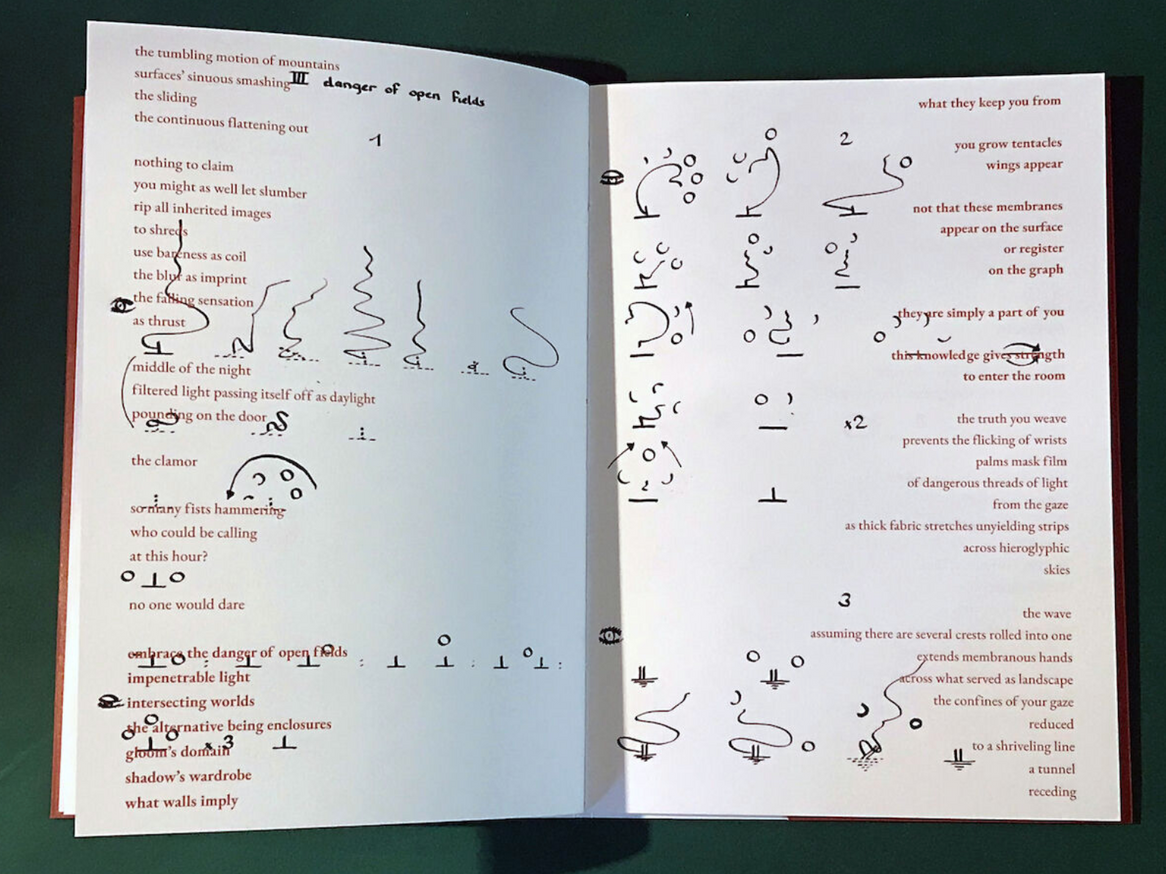 the tumbling motion of mountains
surfaces' sinuous smashing
III danger of open fields
the sliding
the continuous flattening out
1
nothing to claim
you might as well let slumber
rip all inherited images
to shreds
use bareness as coil
the blur as imprint
the falling sensation
as thrust
middle of the night
filtered light passing itself off as daylight
pounding on the door
the clamor
so many fists hammering
who could be calling
at this hour?
no one would dare
embrace the danger of open fields
impenetrable light
intersecting worlds
the alternative being enclosures
gloom's domain
x 3
shadow's wardrobe
what walls imply
what they keep you from
2
you grow tentacles
wings appear
not that these membranes
appear on the surface
or register
on the graph
they are simply a part of you
this knowledge gives strength
to enter the room
the truth you weave
x2
prevents the flicking of wrists
palms mask film
of dangerous threads of light
from the gaze
as thick fabric stretches unyielding strips
across hieroglyphic
skies
3
the wave
assuming there are several crests rolled into one
extends membranous hands
across what served as landscape
the confines of your gaze
reduced
to a shriveling line
a tunnel
receding